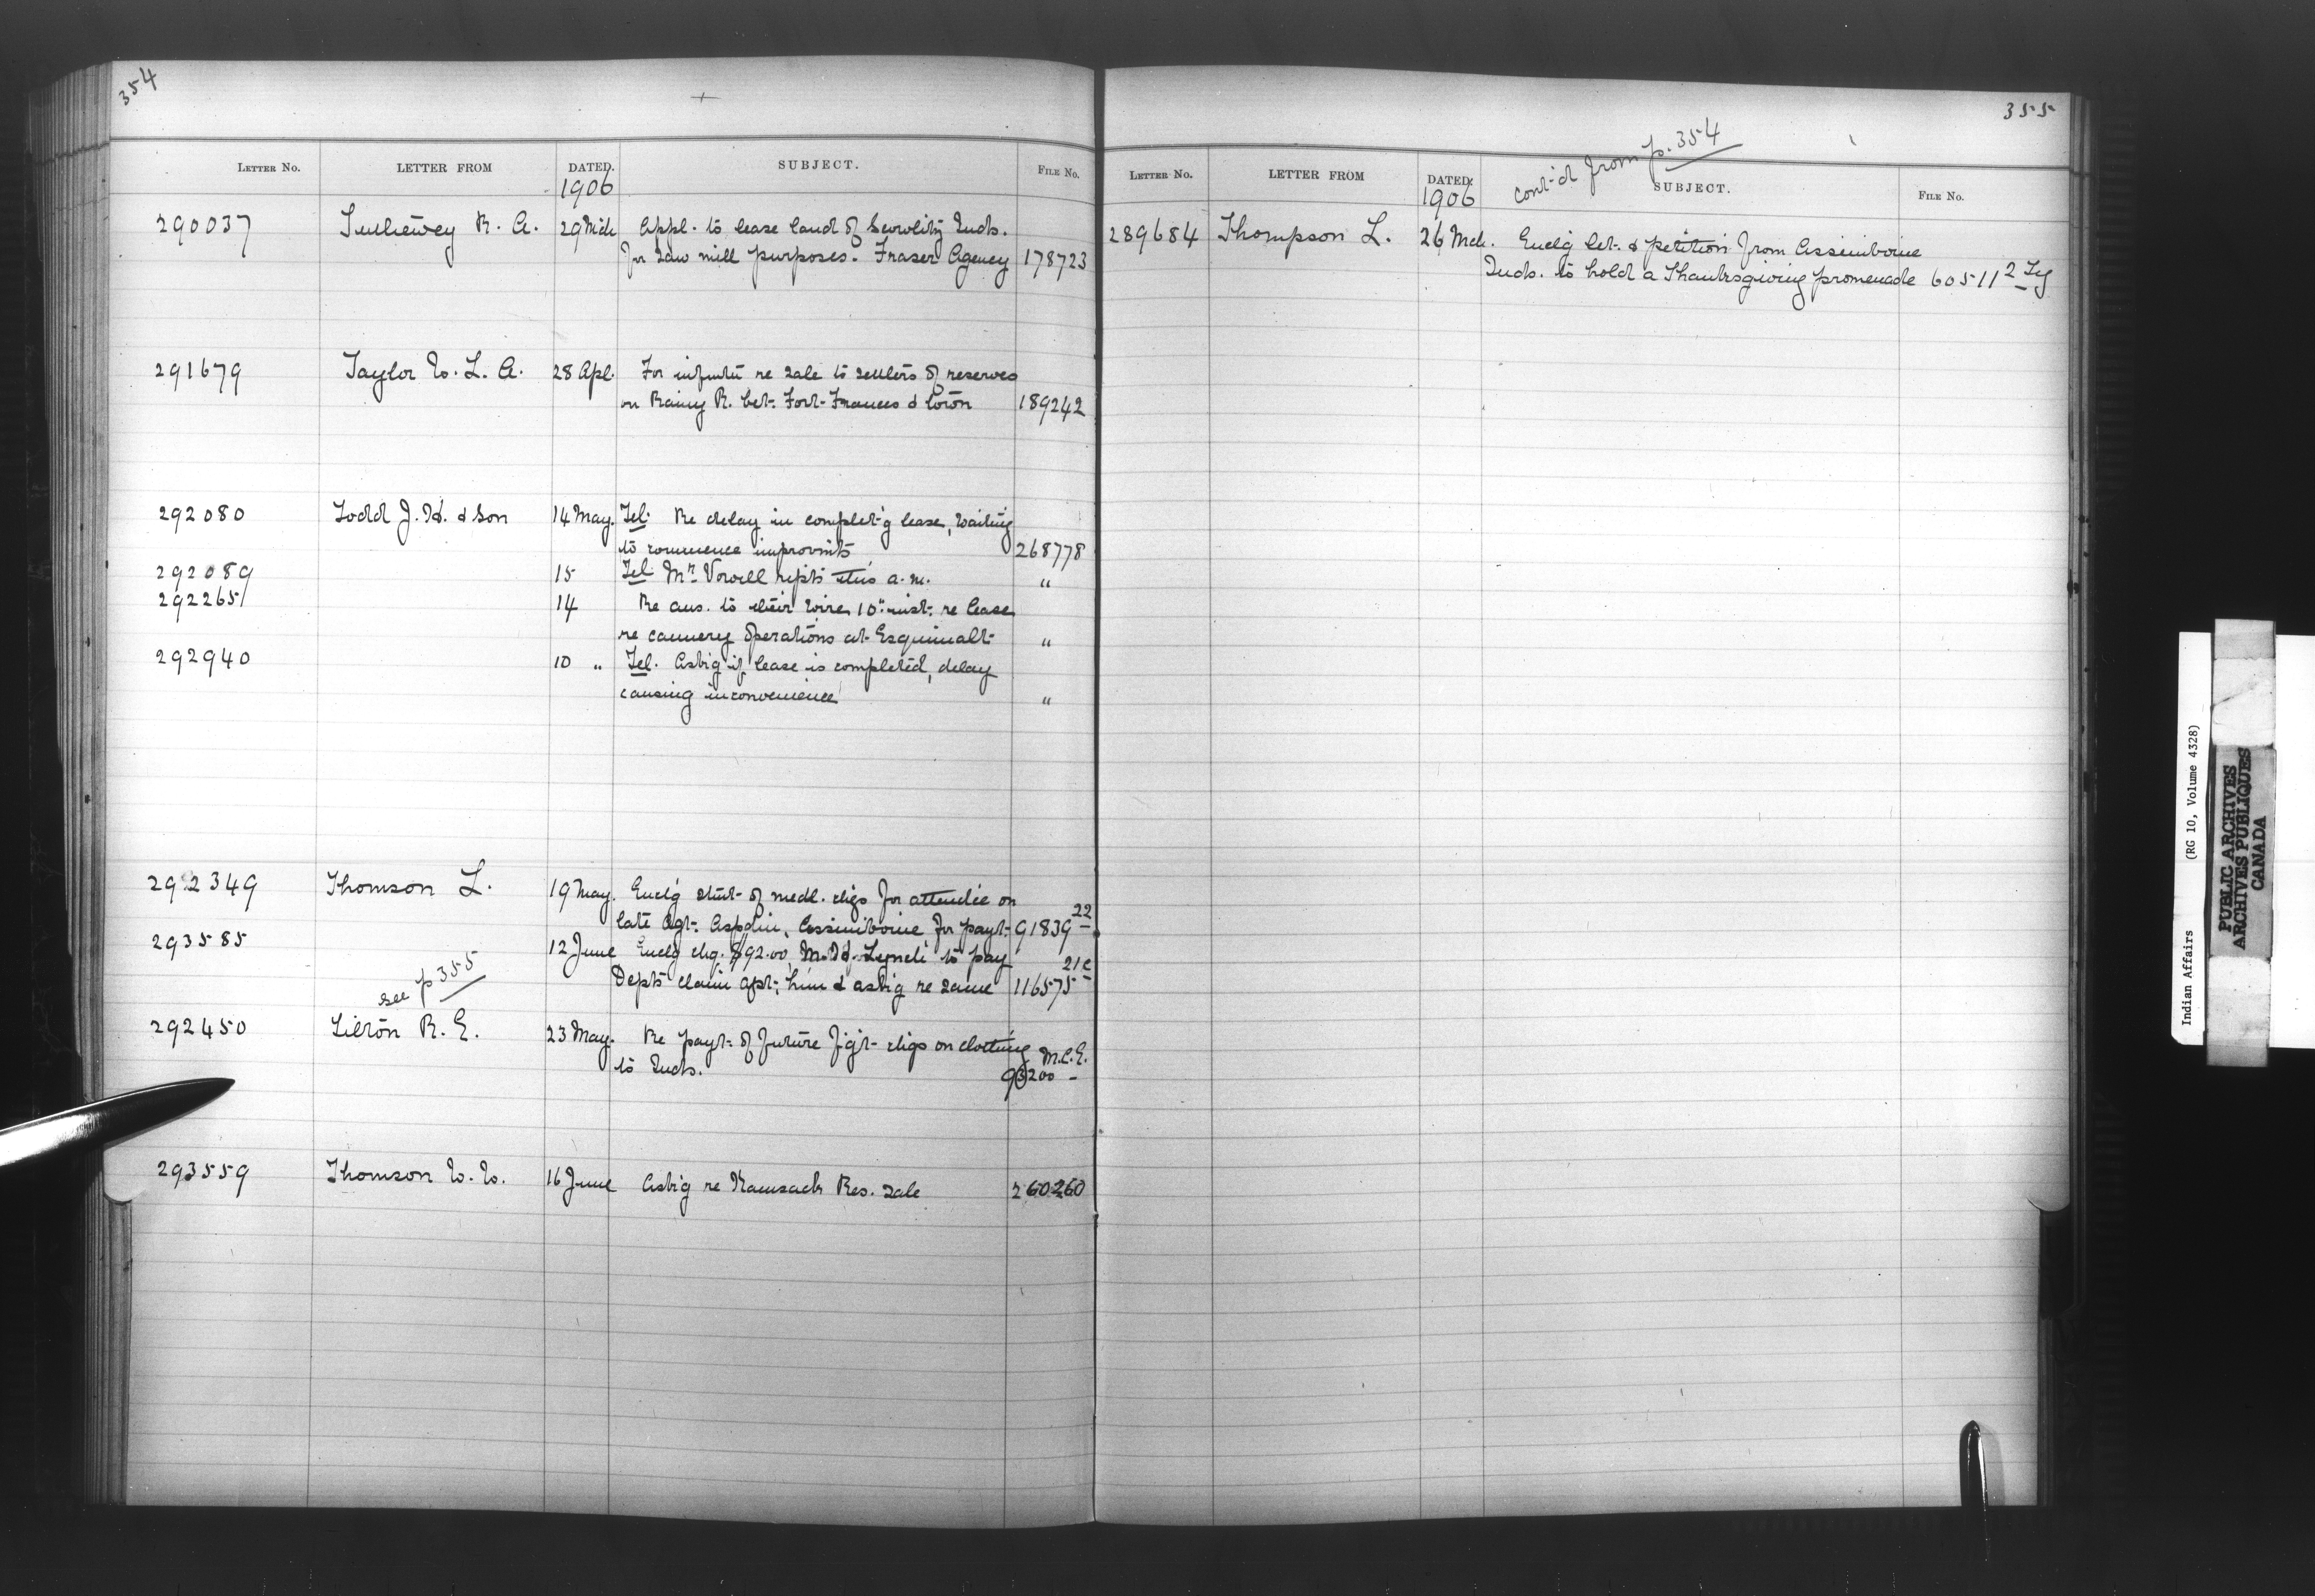 354
LETTER NO. LETTER FROM DATED. SUBJECT. FILE NO.
1906
290037 R. A. 29 Mch Appl. to lease land of Scowlitz Inds.
for saw mill purposes. Fraser Agency 178723
291679 Taylor W. L. A. 28 Apl. For infmtn re sale to settlers of reserves
on Rainy R. bet. Fort Frances &
189242
292080 Todd J. H. & Son 14 May. Tel. Re delay in complet'g lease, waiting
to commence improvmts 268778
292089 15 Tel. Mr Vowell repts this a.m. "
292265 14 Re ans. to their wire 10th inst. re lease
re cannery operations at Esquimalt "
292940 10 " Tel. Askig if lease is completed, delay
causing inconvenience "
292349 Thomson L. 19 May. Enclg stmt of medl. chgs for attendce on
late Agt. Aspdin, Assiniboine for payt. 91839 22
293585 12 June Enclg chq. $92.00, M. H. Lynch to pay
Depts claim agst. him & askig re same 116575 21c
see p 355
292450 Tilton R. E. 23 May. Re payt. of future fgt chgs on clothing
to Inds. 93200 M.C.E.
293559 Thomson W. W. 16 June Askig re Kamsack Res. sale 260260
355
cont'd from p. 354
LETTER NO. LETTER FROM DATED. SUBJECT. FILE NO.
1906
289684 Thompson L. 26 Mch. Enclg let. & petition from Assiniboine
Inds. to hold a Thanksgiving promenade 60511 2
Indian Affairs (RG 10, Volume 4328)
PUBLIC ARCHIVES
ARCHIVES PUBLIQUES
CANADA